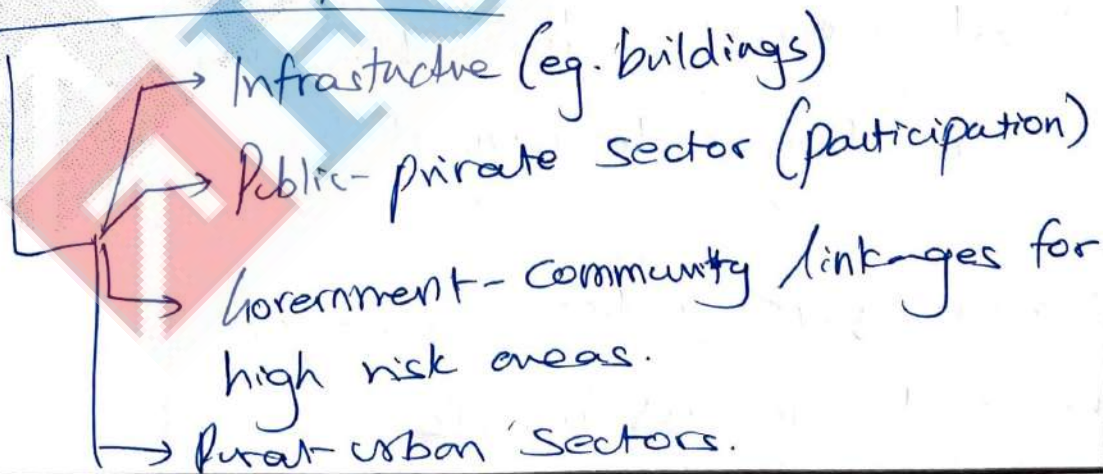 Infrastucture (eg. buildings)
Public-private sector (participation)
Government-community linkages for
high risk areas.
Rural-urban sectors.